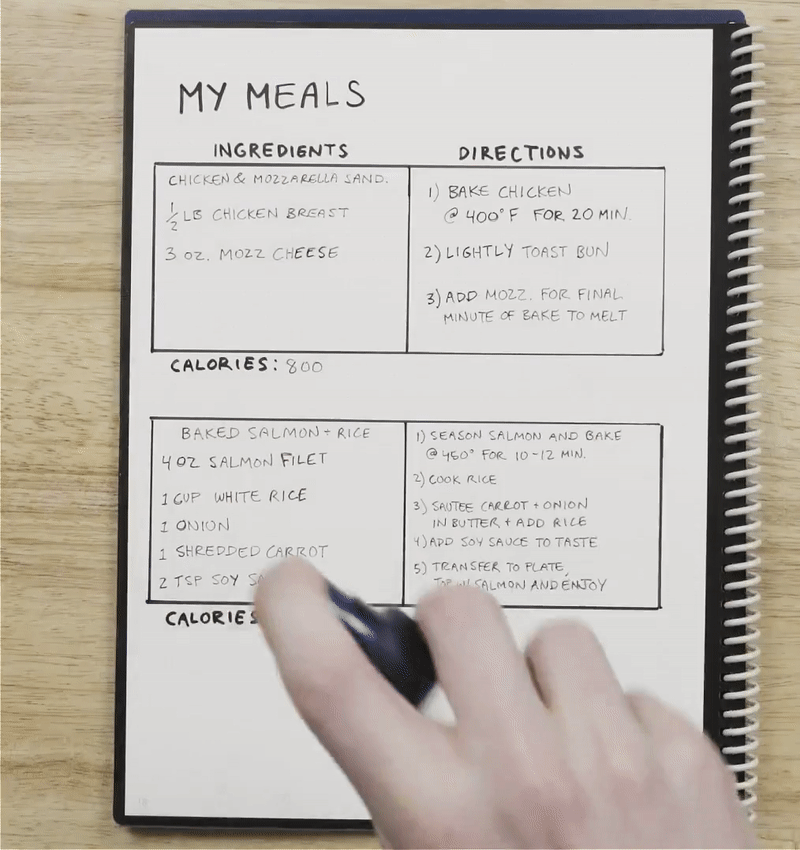 MY MEALS
INGREDIENTS
CHICKEN & MOZZARELLA SAND.
1/2 LB CHICKEN BREAST
3 OZ. MOZZ CHEESE
DIRECTIONS
1) BAKE CHICKEN
@ 400°F FOR 20 MIN.
2) LIGHTLY TOAST BUN
3) ADD MOZZ. FOR FINAL
MINUTE OF BAKE TO MELT
CALORIES: 800
BAKED SALMON + RICE
4 OZ SALMON FILET
1 CUP WHITE RICE
1 ONION
1 SHREDDED CARROT
2 TSP SOY
1) SEASON SALMON AND BAKE
@ 450° FOR 10-12 MIN.
2) COOK RICE
3) SAUTEE CARROT + ONION
IN BUTTER + ADD RICE
4) ADD SOY SAUCE TO TASTE
5) TRANSFER TO PLATE,
SALMON AND ENJOY
CALORIES